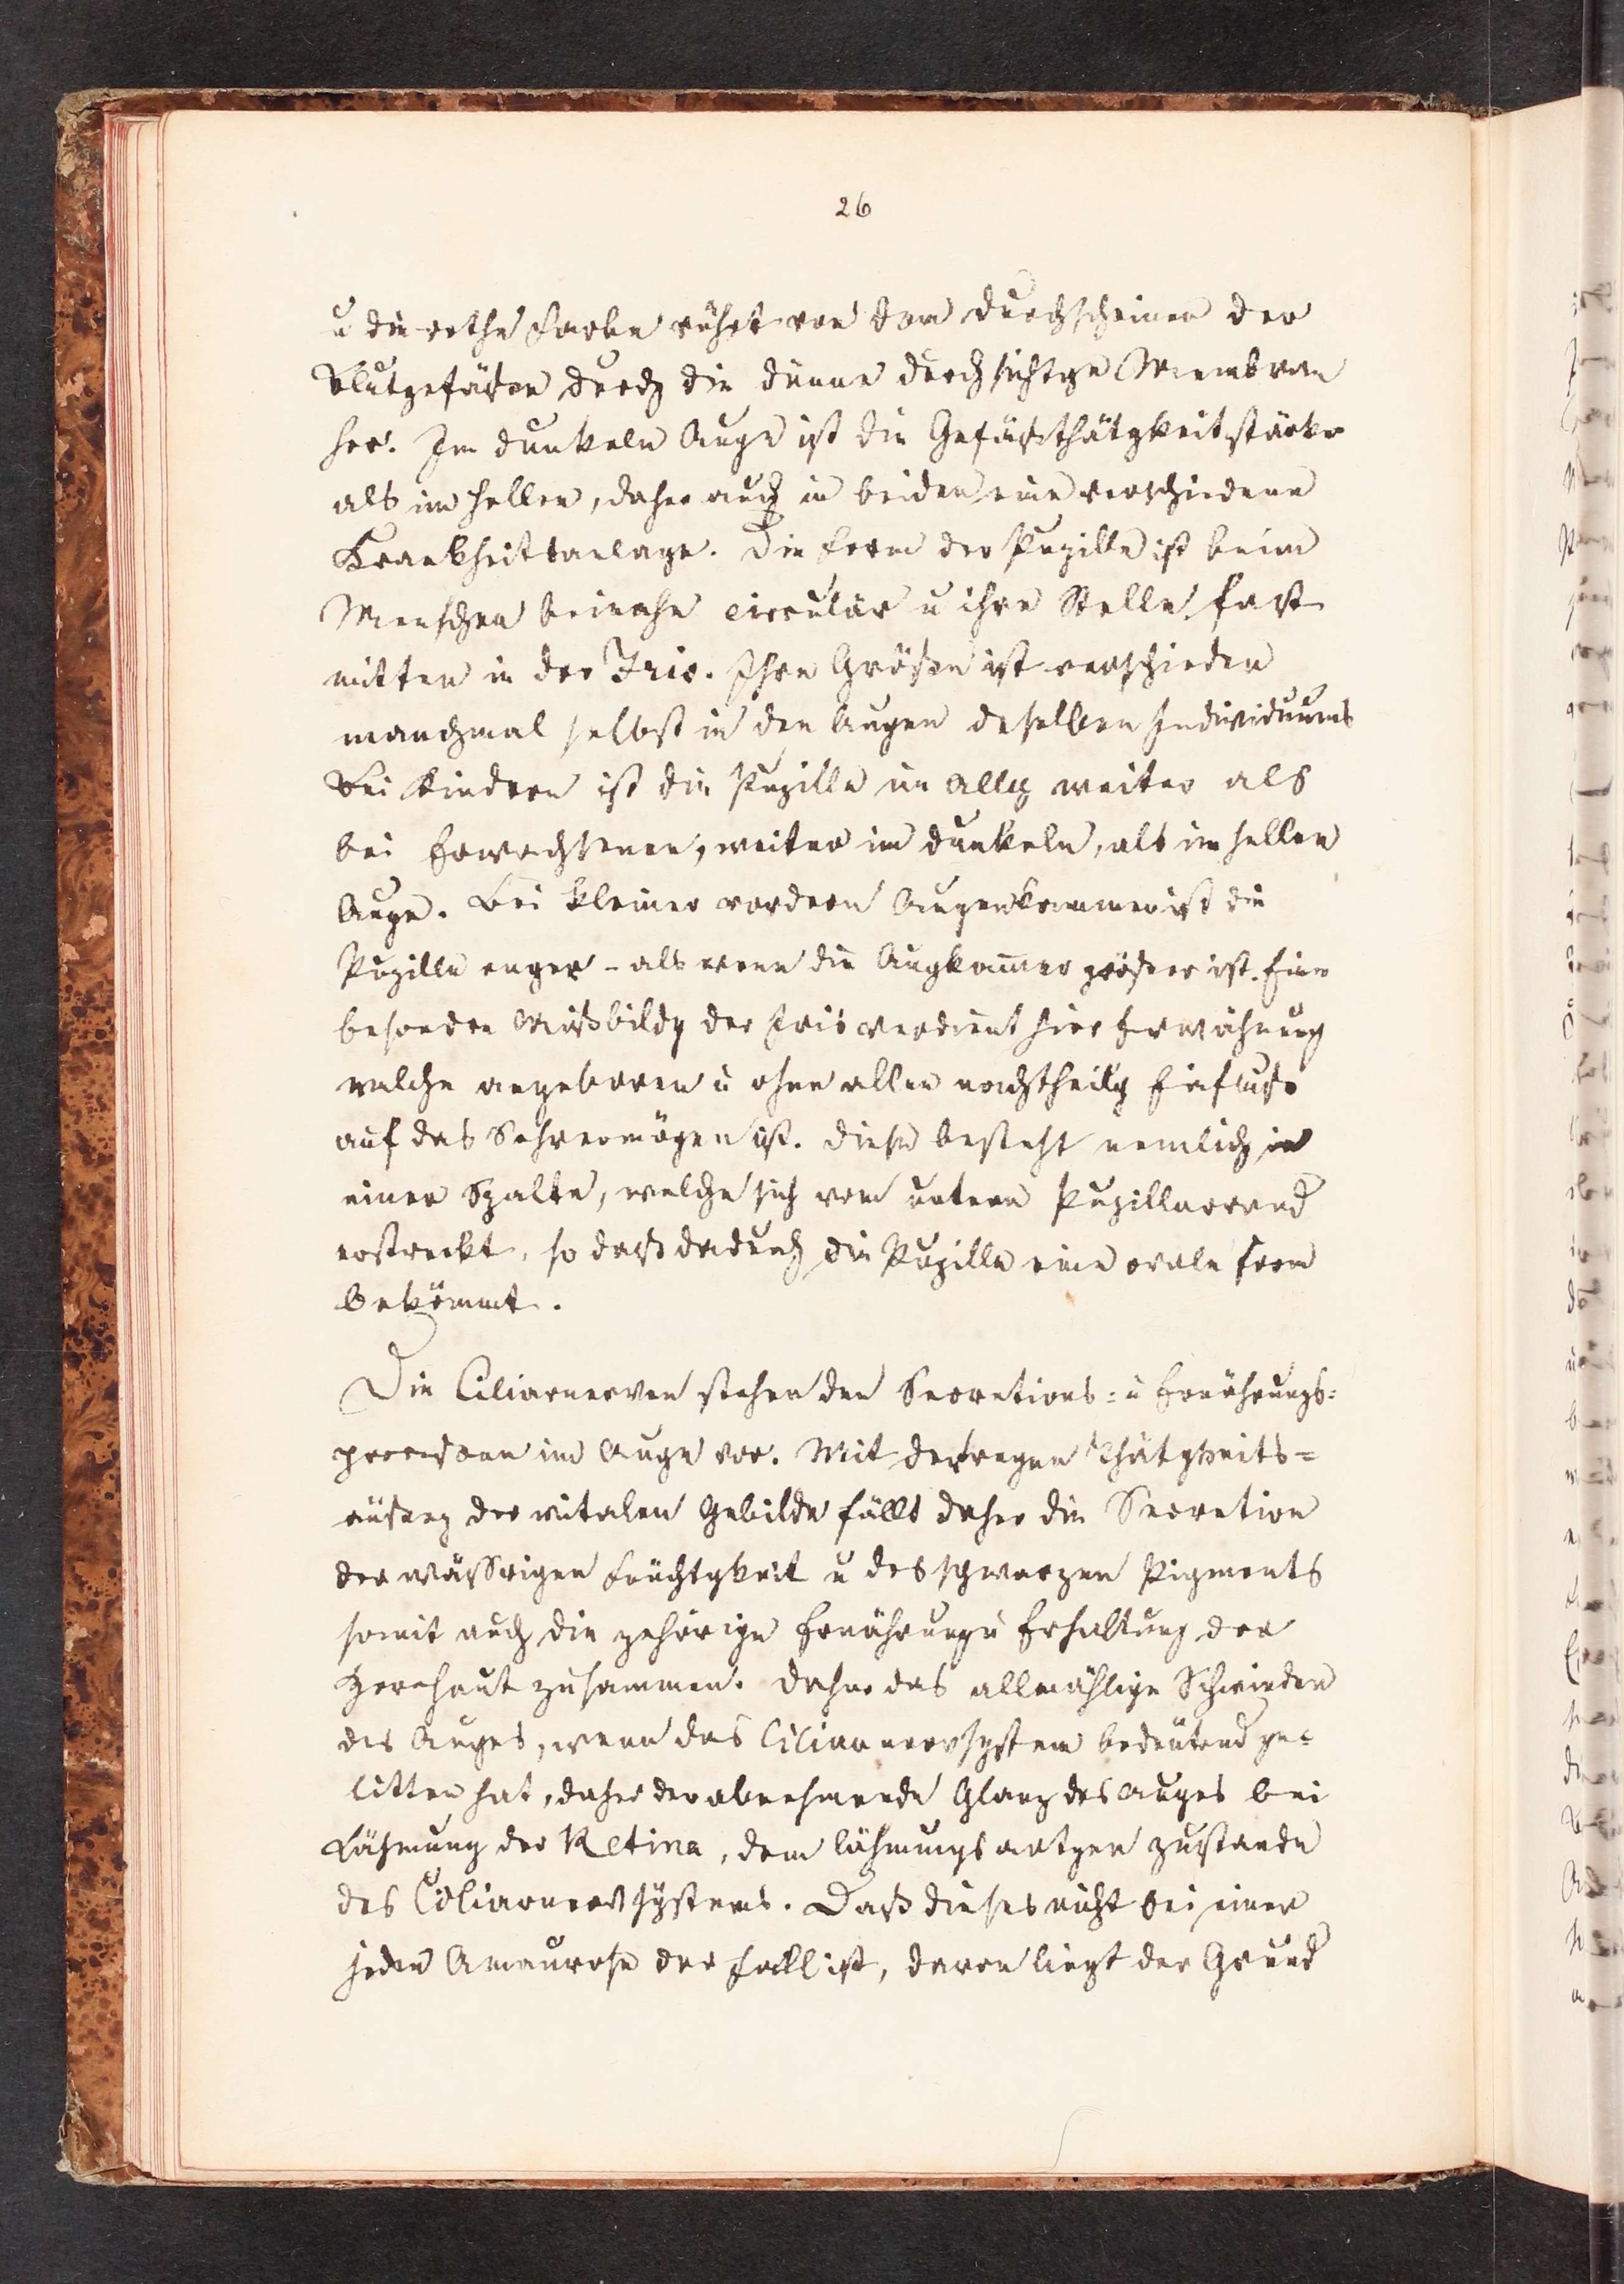 26
u die rothe Farbe rührt von dem Durchscheinen der
Blutgefäße durch die dünne durchsichtge Membran
her. Im dunkeln Auge ist die Gefäßthätgkeit stärker
als im hellen, daher auch in beiden eine verschiedene
Krankheitsanlage. Die Form der Pupille ist beim
Menschen beinahe circulär u ihre Stelle fast
mitten in der Iris. Ihre Größe ist verschieden
manchmal selbst in den Augen deselben Individuums
Bei Kindern ist die Pupille im Allg weiter als
bei Erwachsenen, weiter im dunkeln, als im hellen
Auge. Bei kleiner vordern Augenkammer ist die
Pupille enger – als wenn die Augkam̅er größer ist. Eine
besondre Mißbildg der Iris verdient hier Erwähnung
welche angeboren u ohne allen nachtheilg Einfluß
auf das Sehvermögen ist. Diese besteht nemlich in
einer Spalte, welche sich vom untern Pupillarrand
erstreckt, so daß dadurch die Pupille eine ovale Form
bekömmt.
Die Ciliarnerven stehen den Secretions= u Ernährungs=
processen im Auge vor. Mit der regen Thätgkeits=
äußerg der vitalen Gebilde fällt daher die Secretion
der wässrigen Feuchtgkeit u des schwarzen Pigments
somit auch die gehörige Ernährung u Erhaltung der
Hornhaut zusammen. Daher das allmählige Schwinden
des Auges, wenn das Ciliarnervsystem bedeutend ge=
litten hat, daher der abnehmende Glanz des Auges bei
Lähmung der Retina, dem lähmungsartgen Zustande
des Ciliarnervsystems. Daß dieses nicht bei einer
jeden Amaurose der Fall ist, davon liegt der Grund